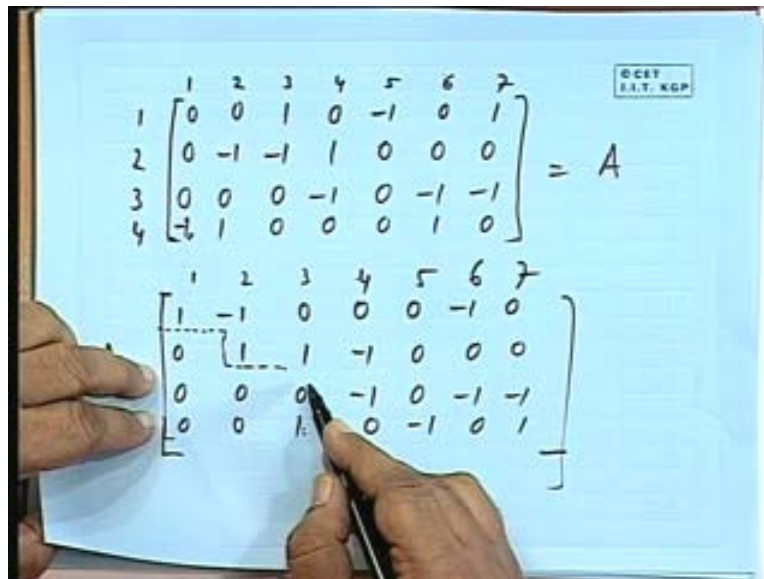 ©CET
I.I.T. KGP
1 2 3 4 5 6 7
1 0 0 1 0 -1 0 1
2 0 -1 -1 1 0 0 0 = A
3 0 0 0 -1 0 -1 -1
4 -1 1 0 0 0 1 0
1 2 3 4 5 6 7
1 -1 0 0 0 -1 0
0 1 1 -1 0 0 0
0 0 0 -1 0 -1 -1
0 0 1 0 -1 0 1